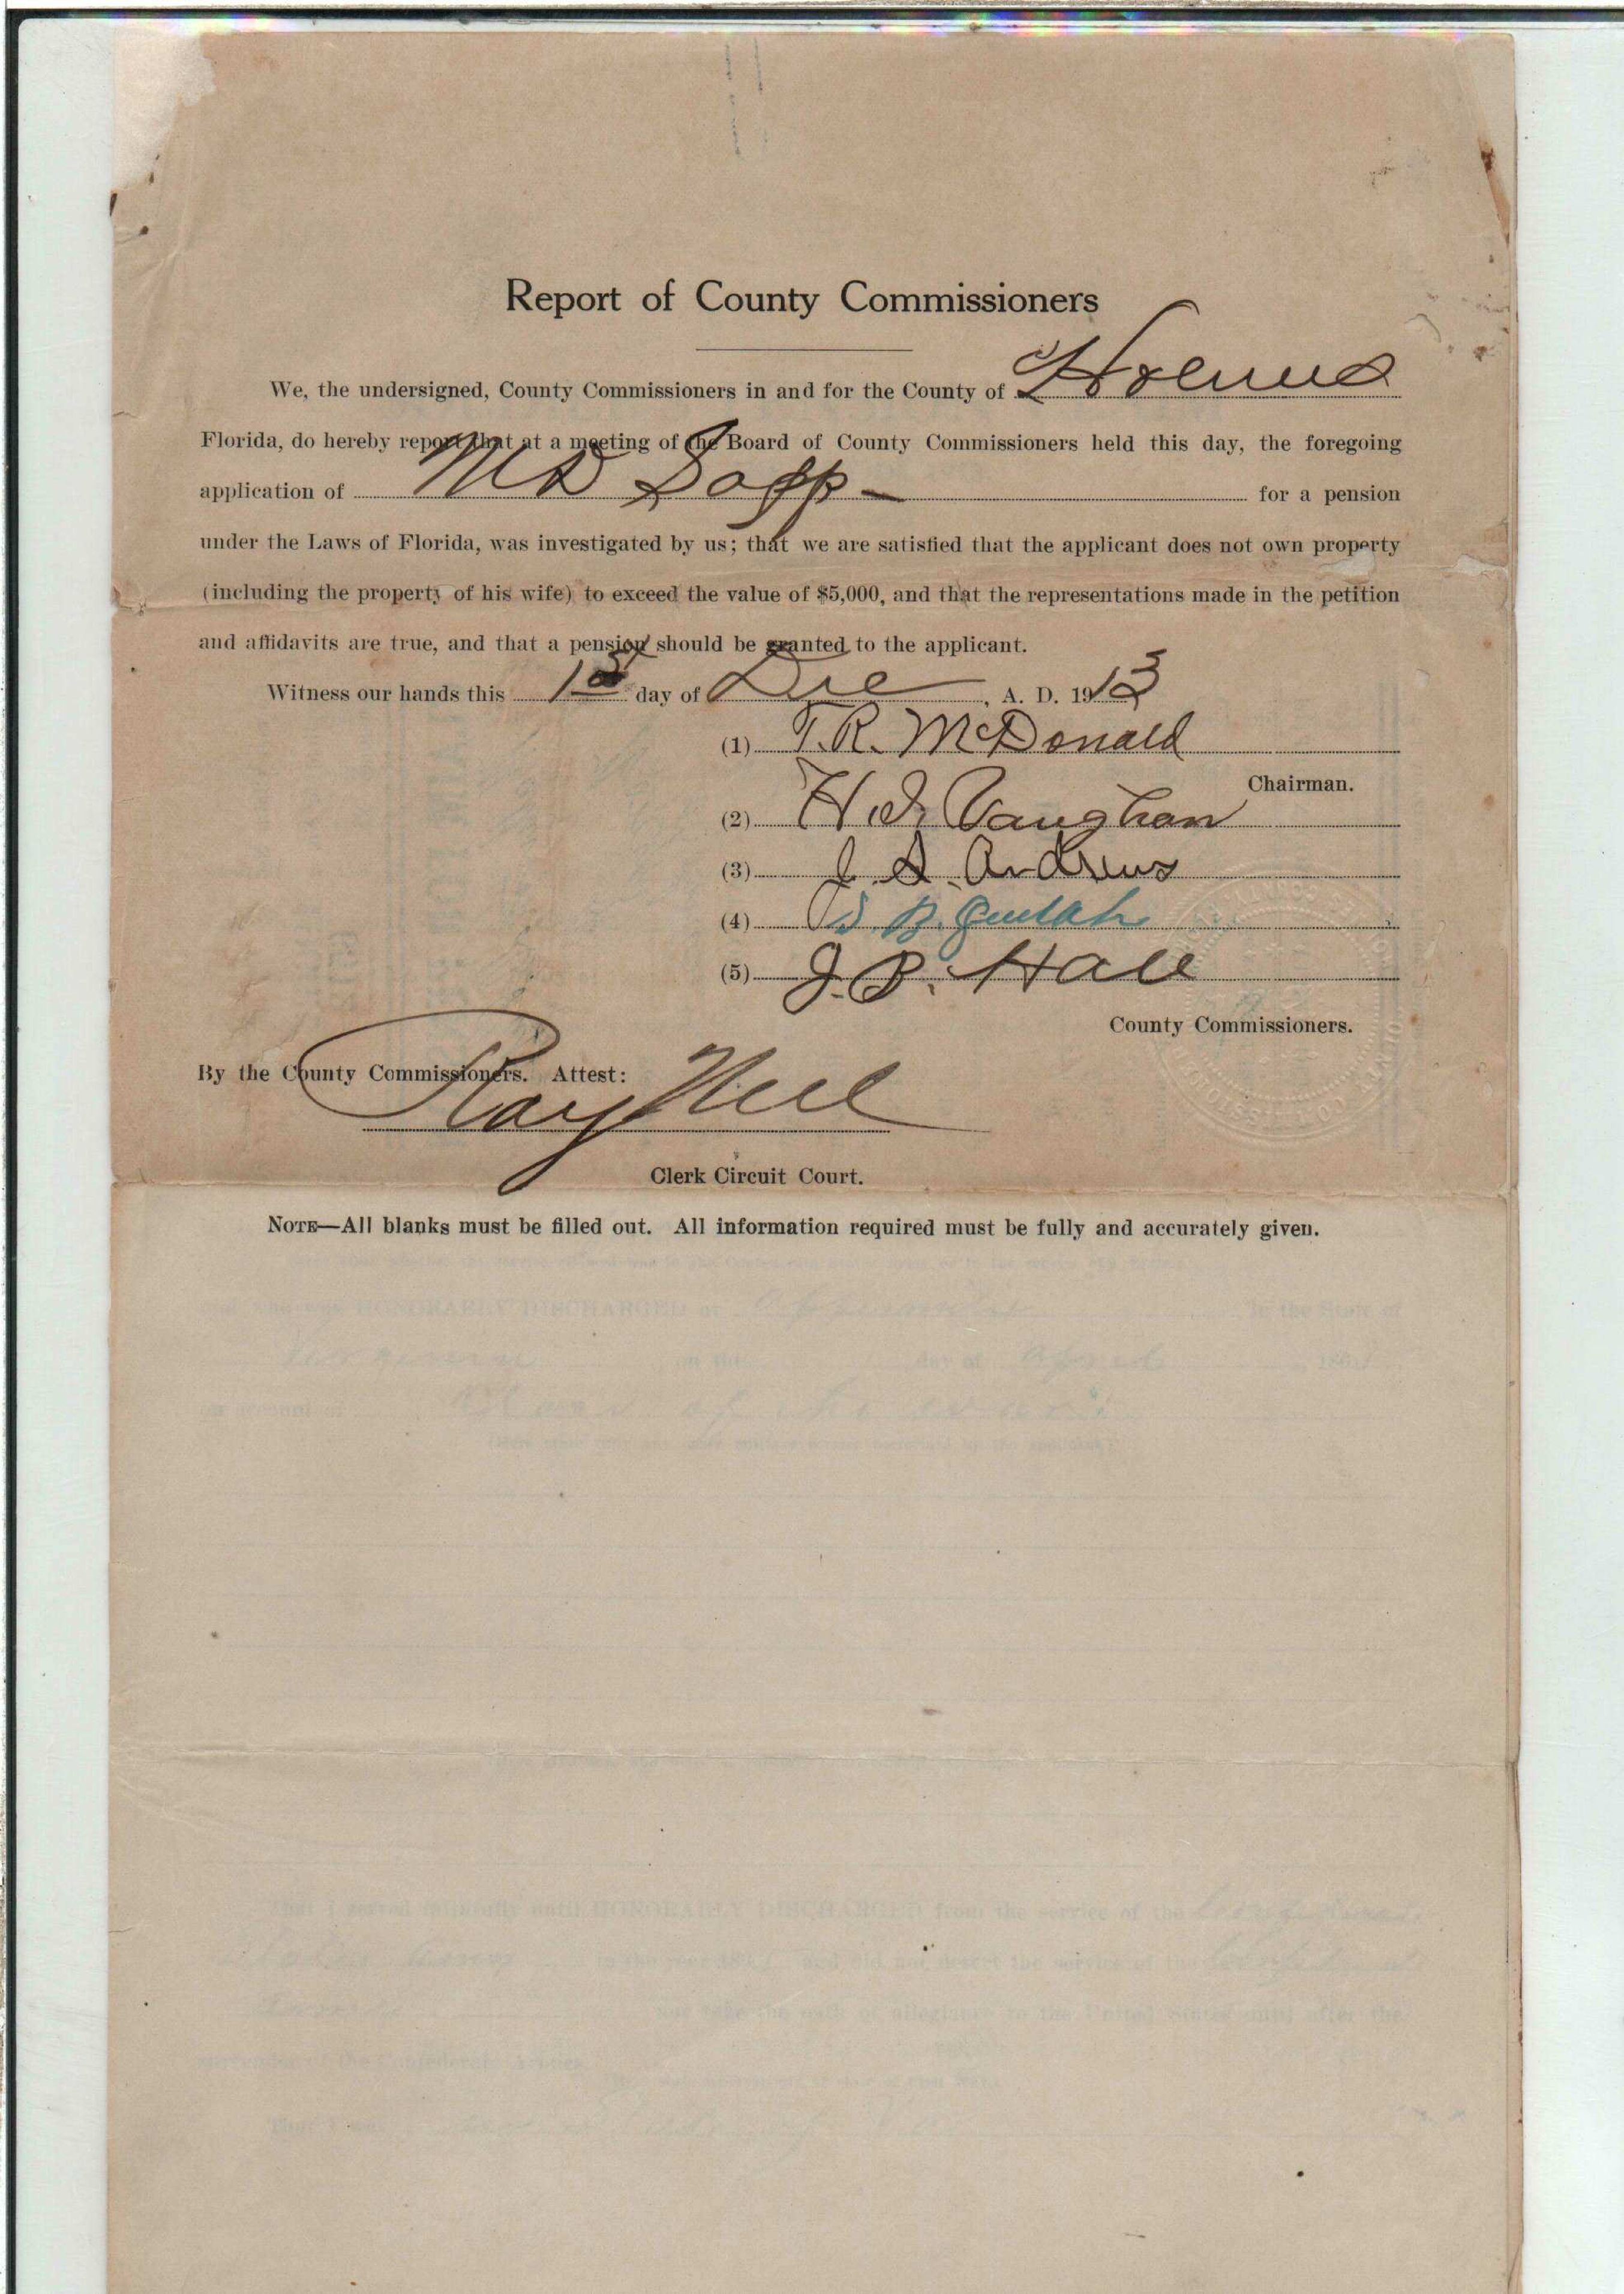 Report of County Commissioners
We, the undersigned, County Commissioners in and for the County of Holmes
Florida, do hereby report that at a meeting of the Board of County Commissioners held this day, the foregoing
application of M D Sapp for a pension
under the Laws of Florida, was investigated by us; that we are satisfied that the applicant does not own property
(including the property of his wife) to exceed the value of $5,000, and that the representations made in the petition
and affidavits are true, and that a pension should be granted to the applicant.
Witness our hands this 1st day of Dec, A. D. 1913
(1) T.R. McDonald
Chairman.
(2) H.I. Vaughan
(3) J. S. Andrews
(4) B.
(5) J.B. Hall
County Commissioners.
By the County Commissioners. Attest:
Ray Neel
Clerk Circuit Court.
NOTE—All blanks must be filled out. All information required must be fully and accurately given.